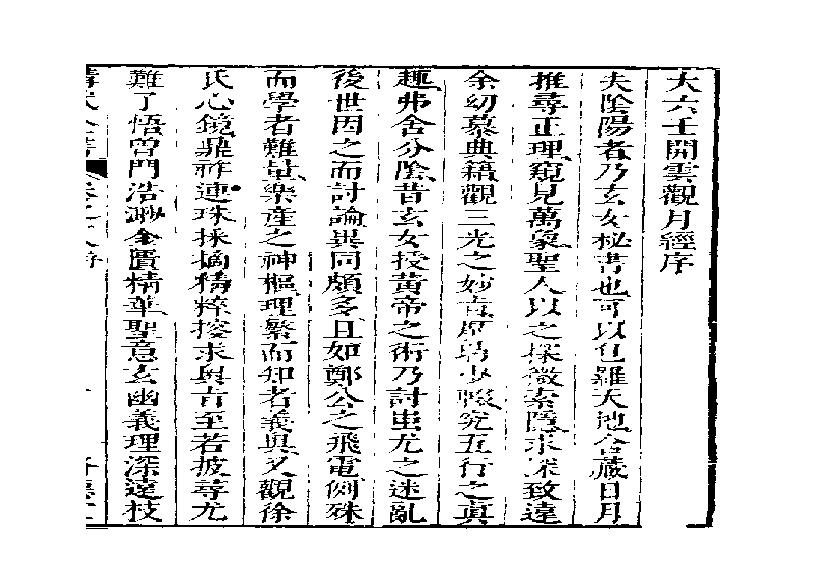 大六壬開雲觀月經序
夫陰陽者乃玄女秘書也可以包羅天地含藏日月
推尋正理窺見萬象聖人以之探微索隱求深致遠
余幼慕典籍觀三光之妙旨席昜少輟究五行之眞
趣弗舍分陰昔玄女授黃帝之術乃討蚩尤之迷亂
後世因之而討論異同頗多且如鄭公之飛電例殊
而學者難㝵樂產之神樞理繁而知者義異又觀徐
氏心鏡鼎祚連珠採摘精粹搜求與古至若披尋尤
難了悟曾門浩渺金匱精華聖意玄幽義理深遠枝